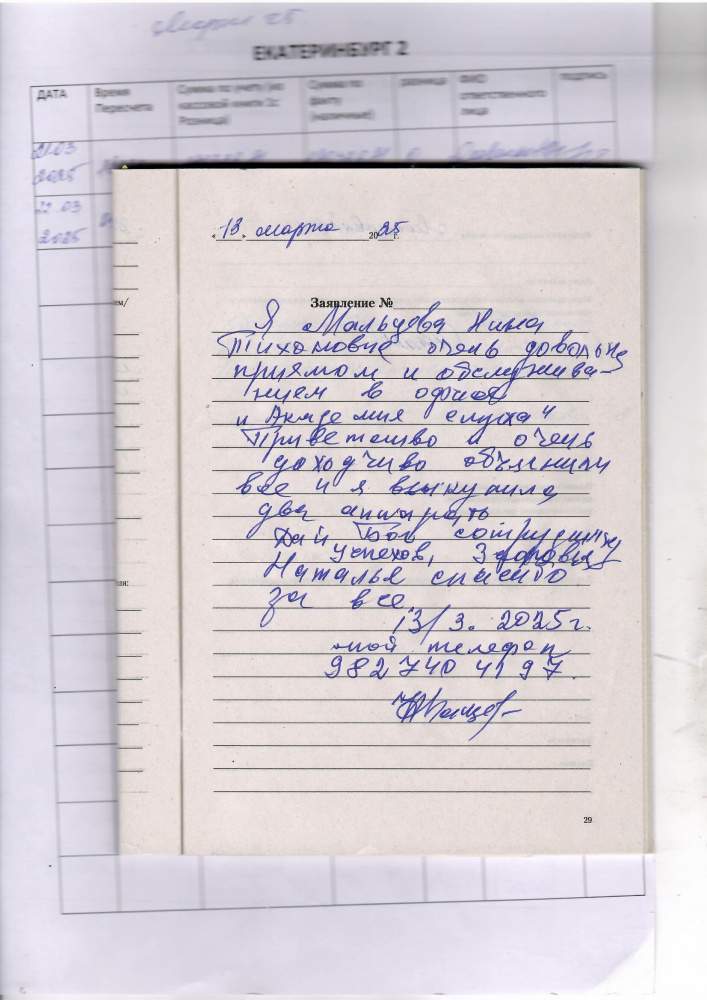 Март 25
ЕКАТЕРИНБУРГ 2
ДАТА
Время Пересчета
Сумма по учету (из кассовой книги 1с Розница)
Сумма по факту (наличные)
разница
ФИО ответственного лица
подпись
21.03
2025
22.03
2025
ем/
или:
«13» марта 2025 г.
Заявление №
Я Мальцева Нина
Тихоновна очень довольна
приямом и обслужива-
нием в офисе
"Академия слуха"
Приветливо и очень
доходчиво объяснили
все и я выкупила
два аппарата
Дай Бог сотруднику
Успехов, Здоровья
Наталье спасибо
за все
13/3. 2025 г.
мой телефон
982 740 41 97.
29